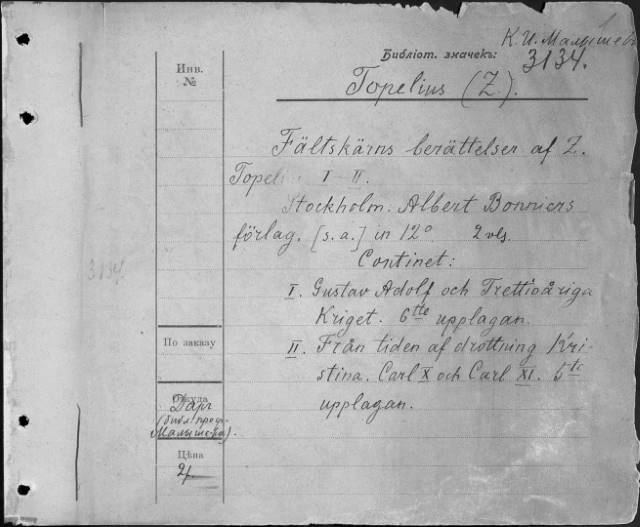 К. И. Малышевъ
1
Библіот. значекъ:
3134.
Инв.
№
Topelius (Z.).
Fältskärns berättelser af Z.
Topeli I–II.
Stockholm. Albert Bonniers
förlag. [s. a.] in 12° 2 vls.
Continet:
3134.
I. Gustav Adolf och Trettioåriga
Kriget. 6tte upplagan.
По заказу
II. Från tiden af drottning Kri-
stina. Carl X och Carl XI. 5te
upplagan.
Откуда
Даръ
(библ. проф.
Малышева).
Цѣна